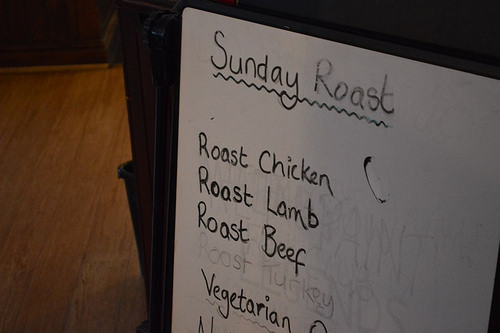 Sunday Roast
Roast Chicken
Roast Lamb
Roast Beef
Roast Turkey
Vegetarian